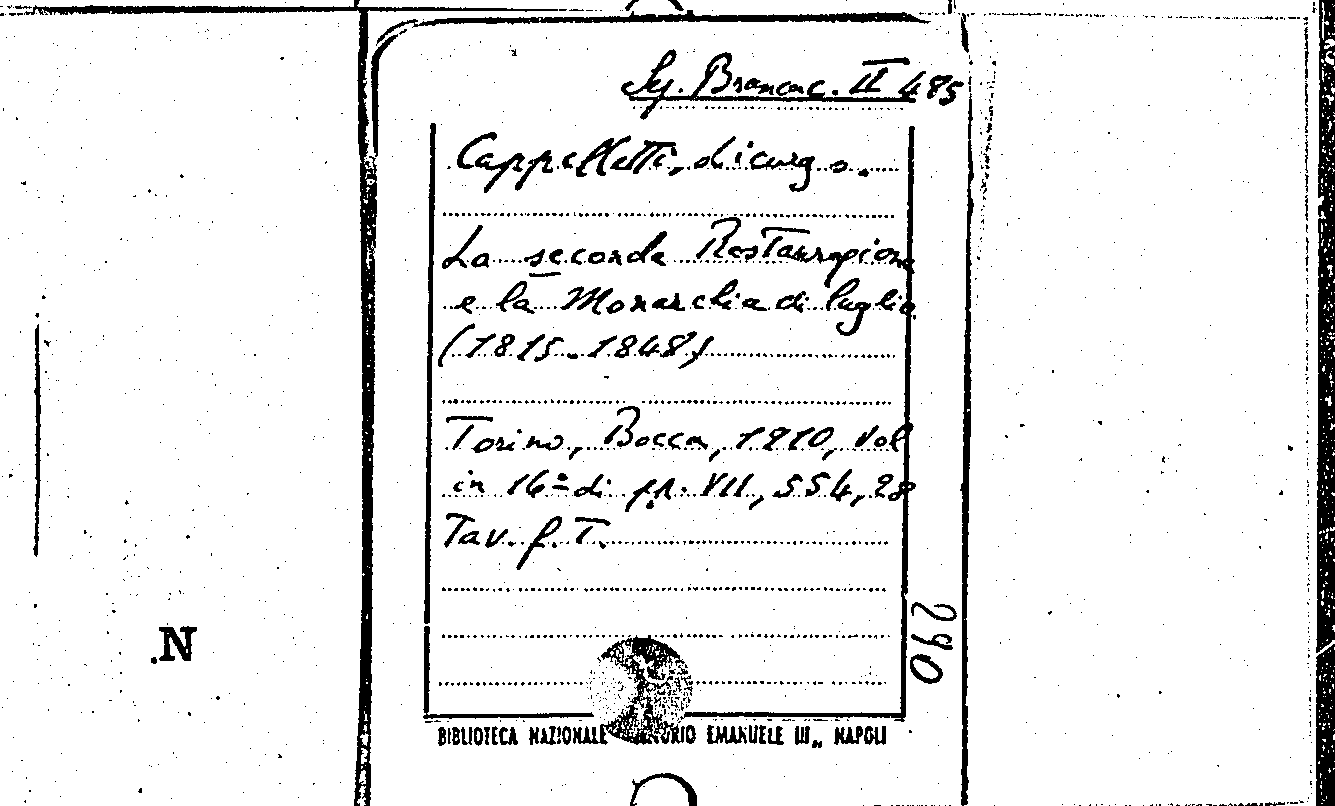 Sy. Brancac. II 485
Cappelletti, Licurgo.
La seconda Restaurazione
e la Monarchia di luglio
(1815-1848)
Torino, Bocca, 1910, vol
in 16º di pp. VII, 554, 28
Tav. f. T.
290
.N
BIBLIOTECA NAZIONALE EMANUELE III„ NAPOLI